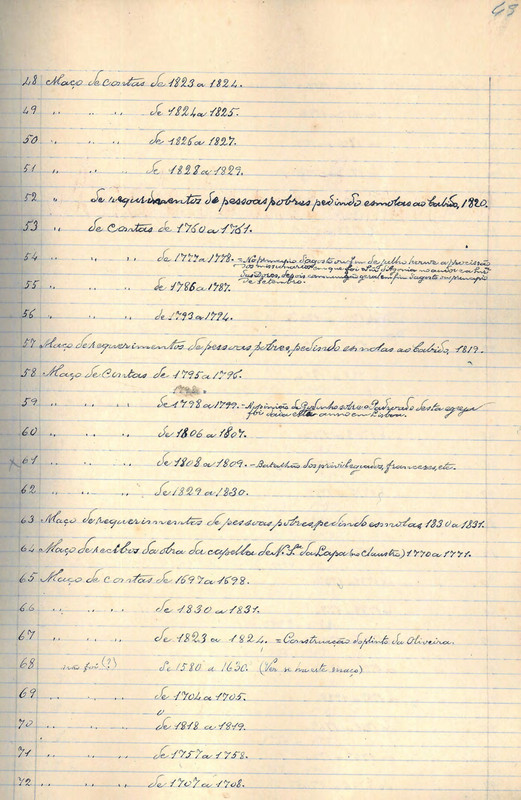 48 Maço de contas de 1823 a 1824.
49 " " " de 1824 a 1825.
50 " " " de 1826 a 1827.
51 " " " de 1828 a 1829.
52 " de requerimentos de pessoas pobres pedindo esmolas ao Cabido, 1820.
53 " de contas de 1760 a 1761.
54 " " " de 1777 a 1778. = No principio d'agosto ou fim de julho houve a procissão
dos
depois geral em fim d'agosto ou principio
de setembro.
55 " " " de 1786 a 1787.
56 " " " de 1793 a 1794.
57 Maço de requerimentos de pessoas pobres, pedindo esmolas ao Cabido, 1819.
58 Maço de Contas de 1795 a 1796.
59 " " " de 1798 a 1799. - A do Padroado desta egreja
foi anno em Lisboa.
60 " " " de 1806 a 1807.
61 " " " de 1808 a 1809. - Batalhão dos privilegiados, francezes, etc.
62 " " " de 1829 a 1830.
63 Maço de requerimentos de pessoas pobres, pedindo esmolas 1830 a 1831.
64 Maço de recibos da obra da capella de N. Sª da Lapa (no Claustro) 1770 a 1771.
65 Maço de contas de 1697 a 1698.
66 " " " de 1830 a 1831.
67 " " " de 1823 a 1824. = Construcção do da Oliveira.
68 não foi (?) de 1580 a 1630. (Vêr n este maço)
69 " " " de 1704 a 1705.
70 " " " de 1818 a 1819.
71 " " " de 1757 a 1758.
72 " " " de 1707 a 1708.